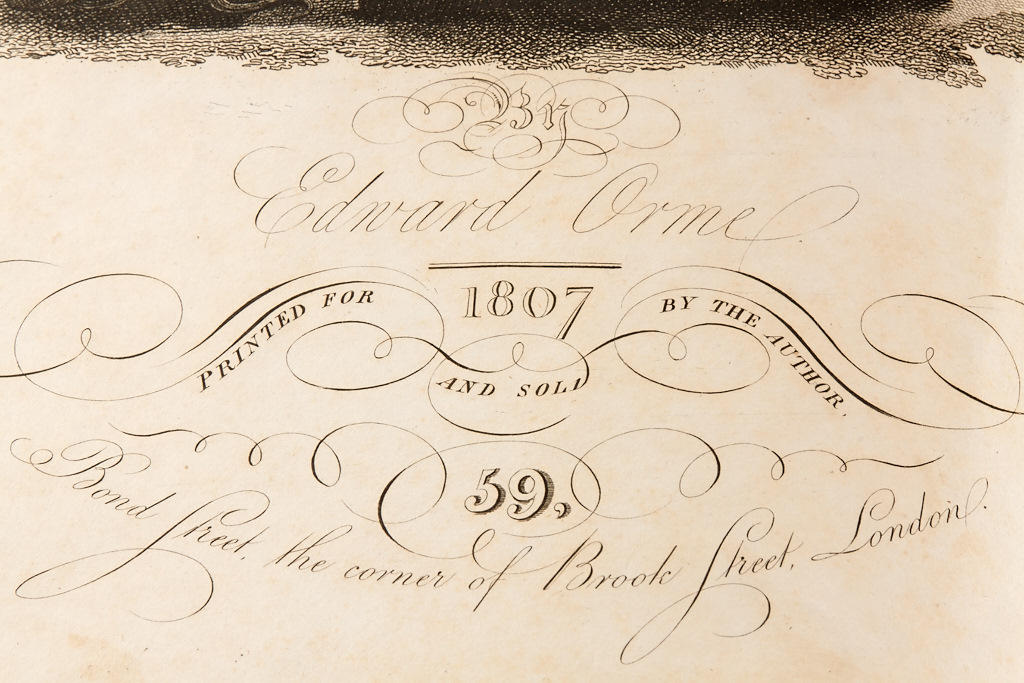 By
Edward Orme
1807
PRINTED FOR AND SOLD BY THE AUTHOR,
59,
Bond Street, the corner of Brook Street, London.